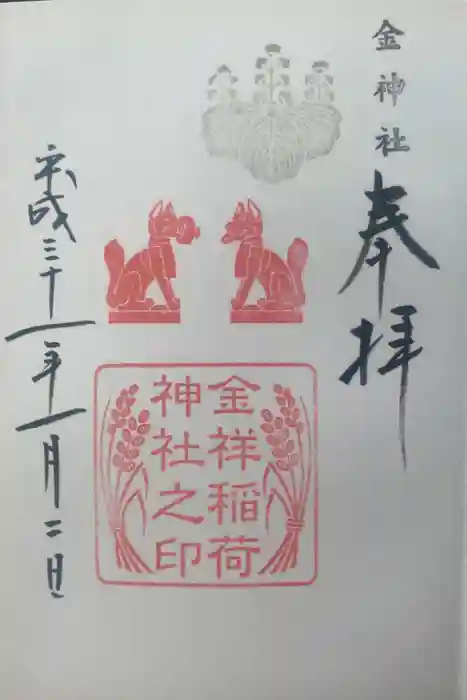 金神社
奉拝
金祥稲荷
神社之印
平成三十一年一月二日